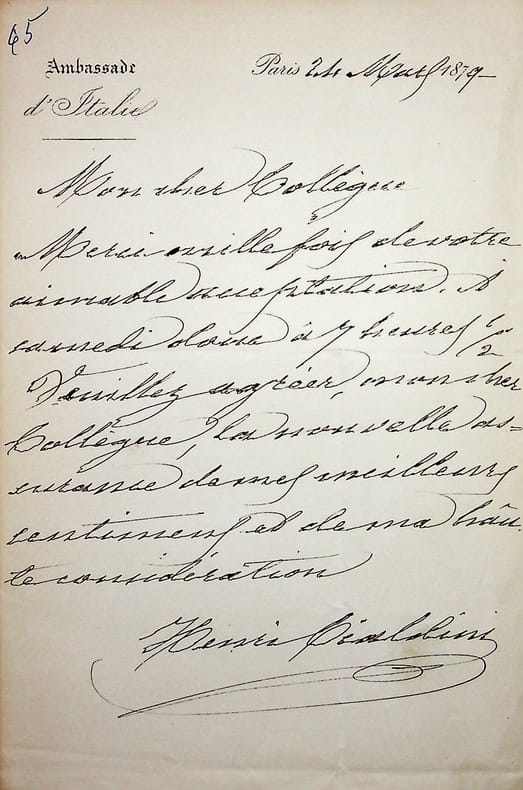 65
Ambassade
d'Italie
Paris 24 Mars 1879
Mon cher Collègue
Merci mille fois de votre
aimable acceptation. A
samedi donc à 7 heures 1/2
Veuillez agréer, mon cher
Collègue, la nouvelle as-
surance de mes meilleurs
sentimens et de ma hau-
te considération
Henri Cialdini